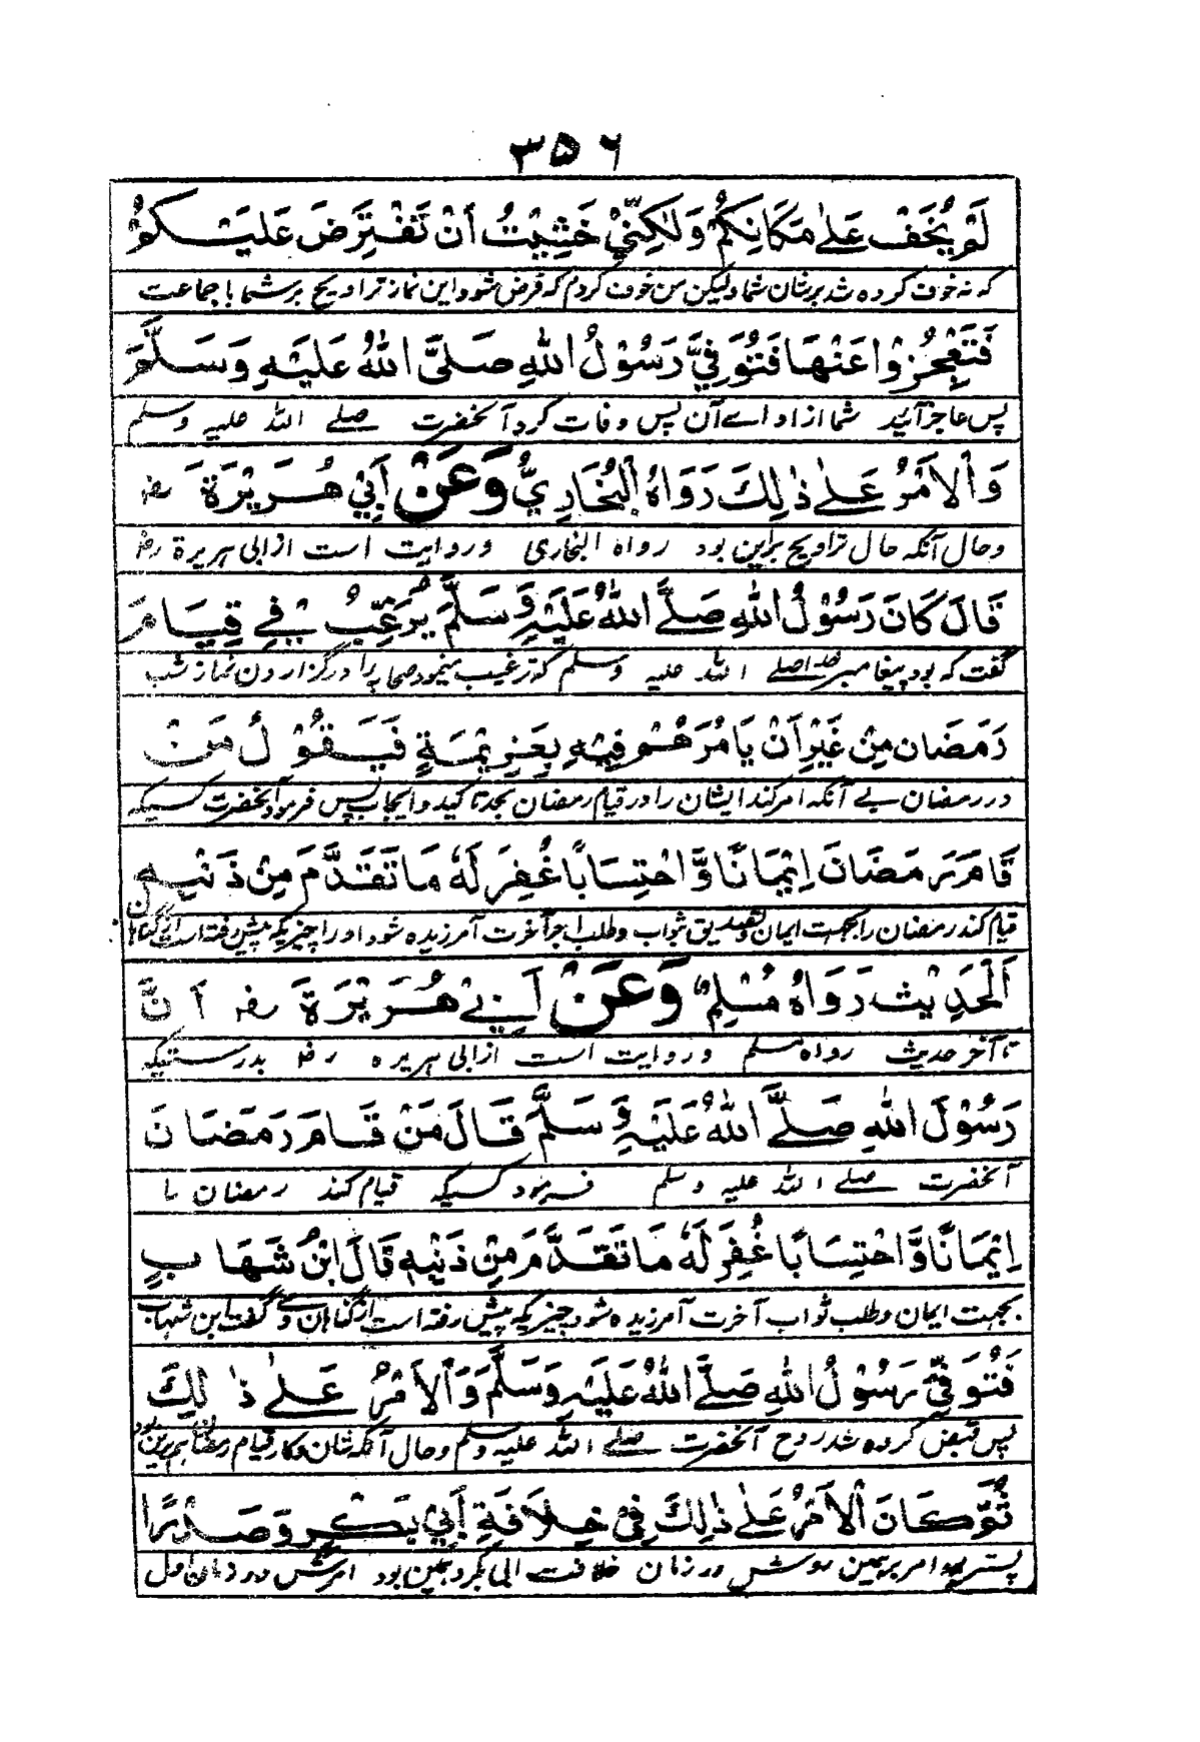 ۳۵۶
لَمْ يُخَفْ عَلٰى مَكَانِكُمْ وَلٰكِنِّيْ خَشِيْتُ اَنْ تَفْتَرِضَ عَلَيْكُمْ
که نه خوف کرده شد برشان شما ولیکن من خوف کردم که فرض شود این نماز تراویح بر شما با جماعت
فَتَعْجِزُوْا عَنْهَا فَتُوُفِّيَ رَسُوْلُ اللهِ صَلَّى اللهُ عَلَيْهِ وَسَلَّمَ
پس عاجز آئید شما از ادائے آن پس وفات کرد آنحضرت صلے اللہ علیہ وسلم
وَالْاَمْرُ عَلٰى ذٰلِكَ رَوَاهُ الْبُخَارِيُّ وَعَنْ اَبِيْ هُرَيْرَةَ رض
وحال آنکه حال تراویح براین بود رواه البخاری وروایت است از ابی هریرة رض
قَالَ كَانَ رَسُوْلُ اللهِ صَلَّے اللهُ عَلَيْهِ وَسَلَّمَ يُرَغِّبُ فِيْ قِيَامِ
گفت که بود پیغامبر خدا صلے اللہ علیہ وسلم که ترغیب مینمود صحابه را در گزاردن نماز شب
رَمَضَانَ مِنْ غَيْرِ اَنْ يَامُرَهُمْ فِيْهِ بِعَزِيْمَةٍ فَيَقُوْلُ مَنْ
در رمضان بے آنکه امر کند ایشان را در قیام رمضان بجد تاکید وایجاب پس فرمود آنحضرت کسیکه
قَامَ رَمَضَانَ اِيْمَانًا وَّاحْتِسَابًا غُفِرَ لَهٗ مَا تَقَدَّمَ مِنْ ذَنْبِهٖ
قیام کند رمضان را بجهت ایمان وتصدیق ثواب وطلب اجر آخرت آمرزیده شود او را چیزیکه پیش رفته است از گناهان
اَلْحَدِيْثَ رَوَاهُ مُسْلِمٌ وَعَنْ اَبِيْ هُرَيْرَةَ رض اَنَّ
تا آخر حدیث رواه مسلم وروایت است از ابی هریره رض بدرستیکه
رَسُوْلَ اللهِ صَلَّے اللهُ عَلَيْهِ وَسَلَّمَ قَالَ مَنْ قَامَ رَمَضَانَ
آنحضرت صلے اللہ علیہ وسلم فرمود کسیکه قیام کند رمضان را
اِيْمَانًا وَّاحْتِسَابًا غُفِرَ لَهٗ مَا تَقَدَّمَ مِنْ ذَنْبِهٖ قَالَ ابْنُ شَهَابٍ
بجهت ایمان وطلب ثواب آخرت آمرزیده شود چیزیکه پیش رفته است از گناهان وے گفت ابن شهاب
فَتُوُفِّيَ رَسُوْلُ اللهِ صَلَّے اللهُ عَلَيْهِ وَسَلَّمَ وَالْاَمْرُ عَلٰى ذٰلِكَ
پس قبض کرده شد روح آنحضرت صلے اللہ علیہ وسلم وحال آنکه شان وکار قیام رمضان برین
ثُمَّ كَانَ الْاَمْرُ عَلٰى ذٰلِكَ فِيْ خِلَافَةِ اَبِيْ بَكْرٍ وَصَدْرًا
امر بر همین روش در زمان خلافت ابی بکر وهمین بود امرش در زمان اول